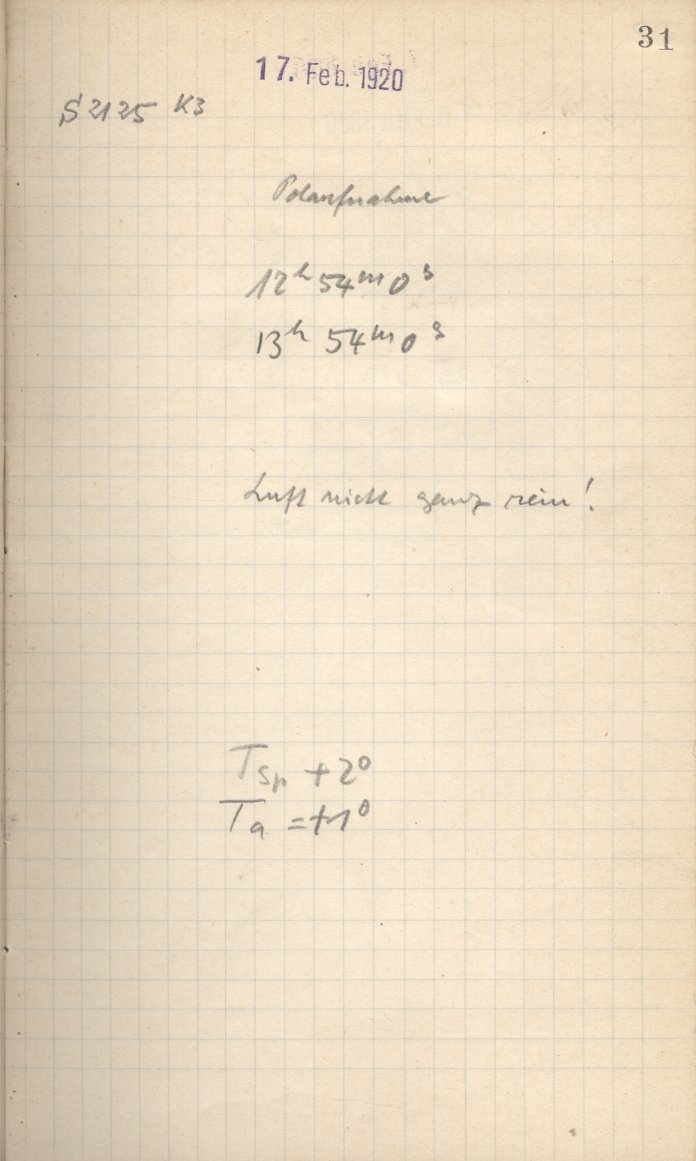 31
17. Feb. 1920
S 2125 K3
Polaufnahme
12h 54m 0s
13h 54m 0s
Luft nicht ganz rein!
TSp +2°
Ta = +1°